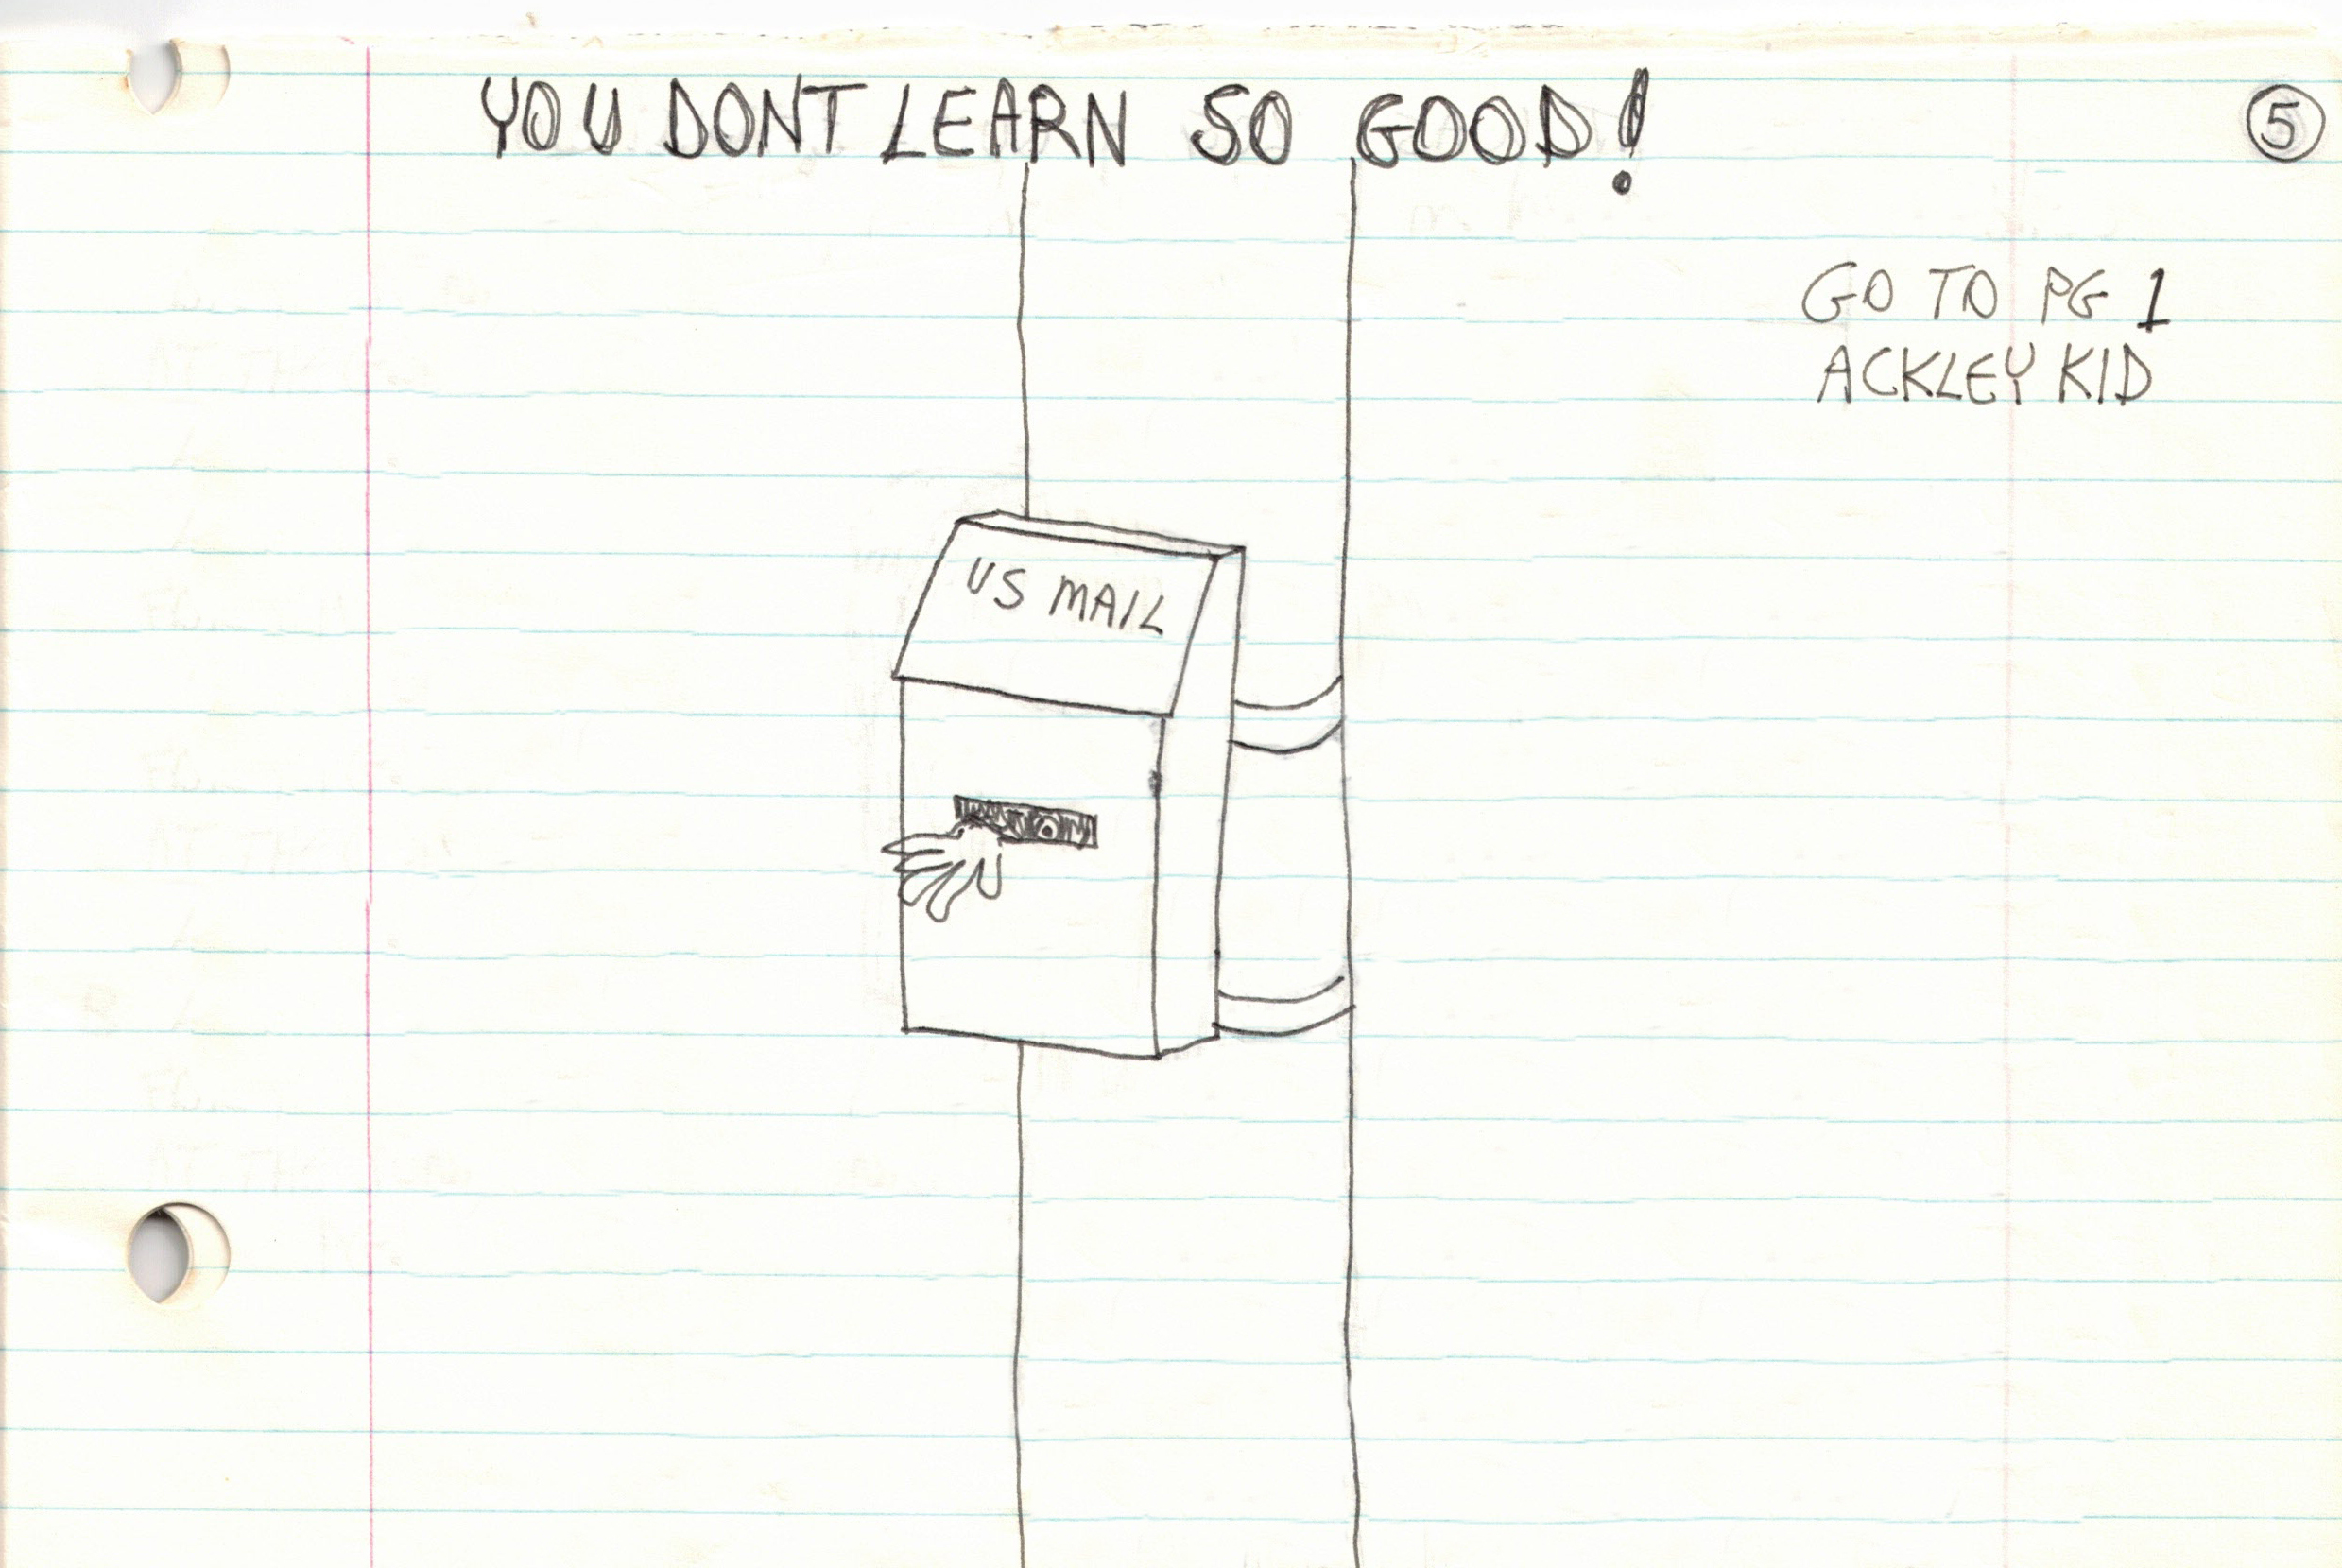 YOU DONT LEARN SO GOOD!
5
GO TO PG 1
ACKLEY KID
US MAIL